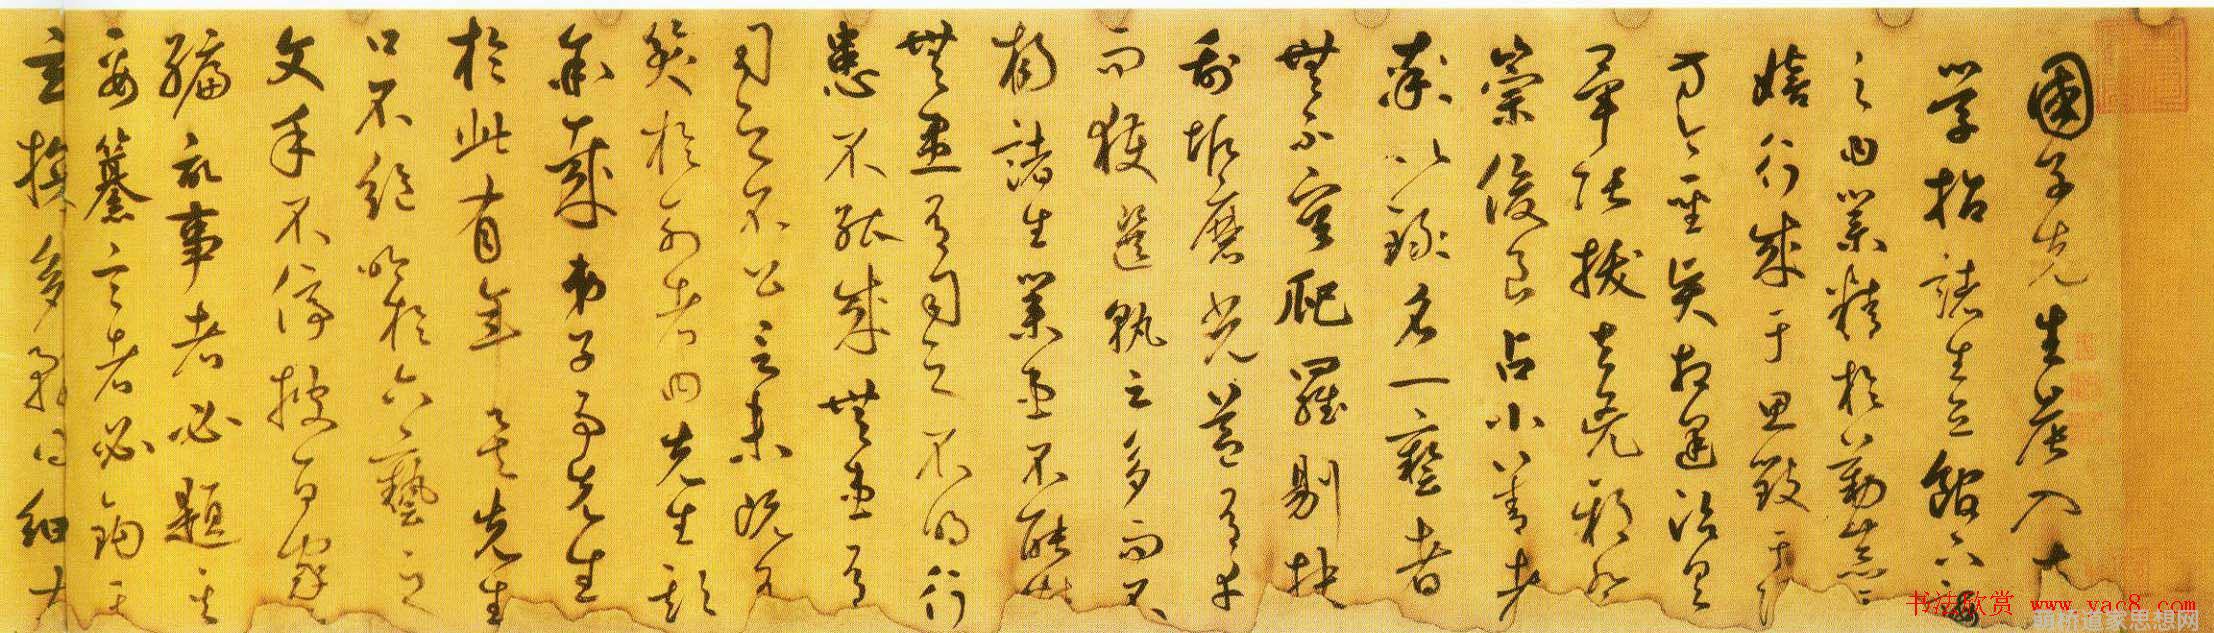 國子先生晨入太
學招諸生立館下誨
之曰業精於勤荒于
嬉行成于思毀于
方今聖賢相逢治具
畢張拔去兇邪登
崇俊良占小善者
率以錄名一藝者
無不庸爬羅剔抉
刮垢磨光蓋有幸
而獲選孰云多而不
揚諸生業患不能
無患有司之不明行
患不能成無患有
司之不公言未既有
笑於列者曰先生欺
余哉弟子事先生
於此有年矣先生
口不絕吟於六藝之
文手不停披百家
編記事者必題其
要纂言者必鉤其
玄多務得細大
书法欣赏 www.yac8.com
道家思想网